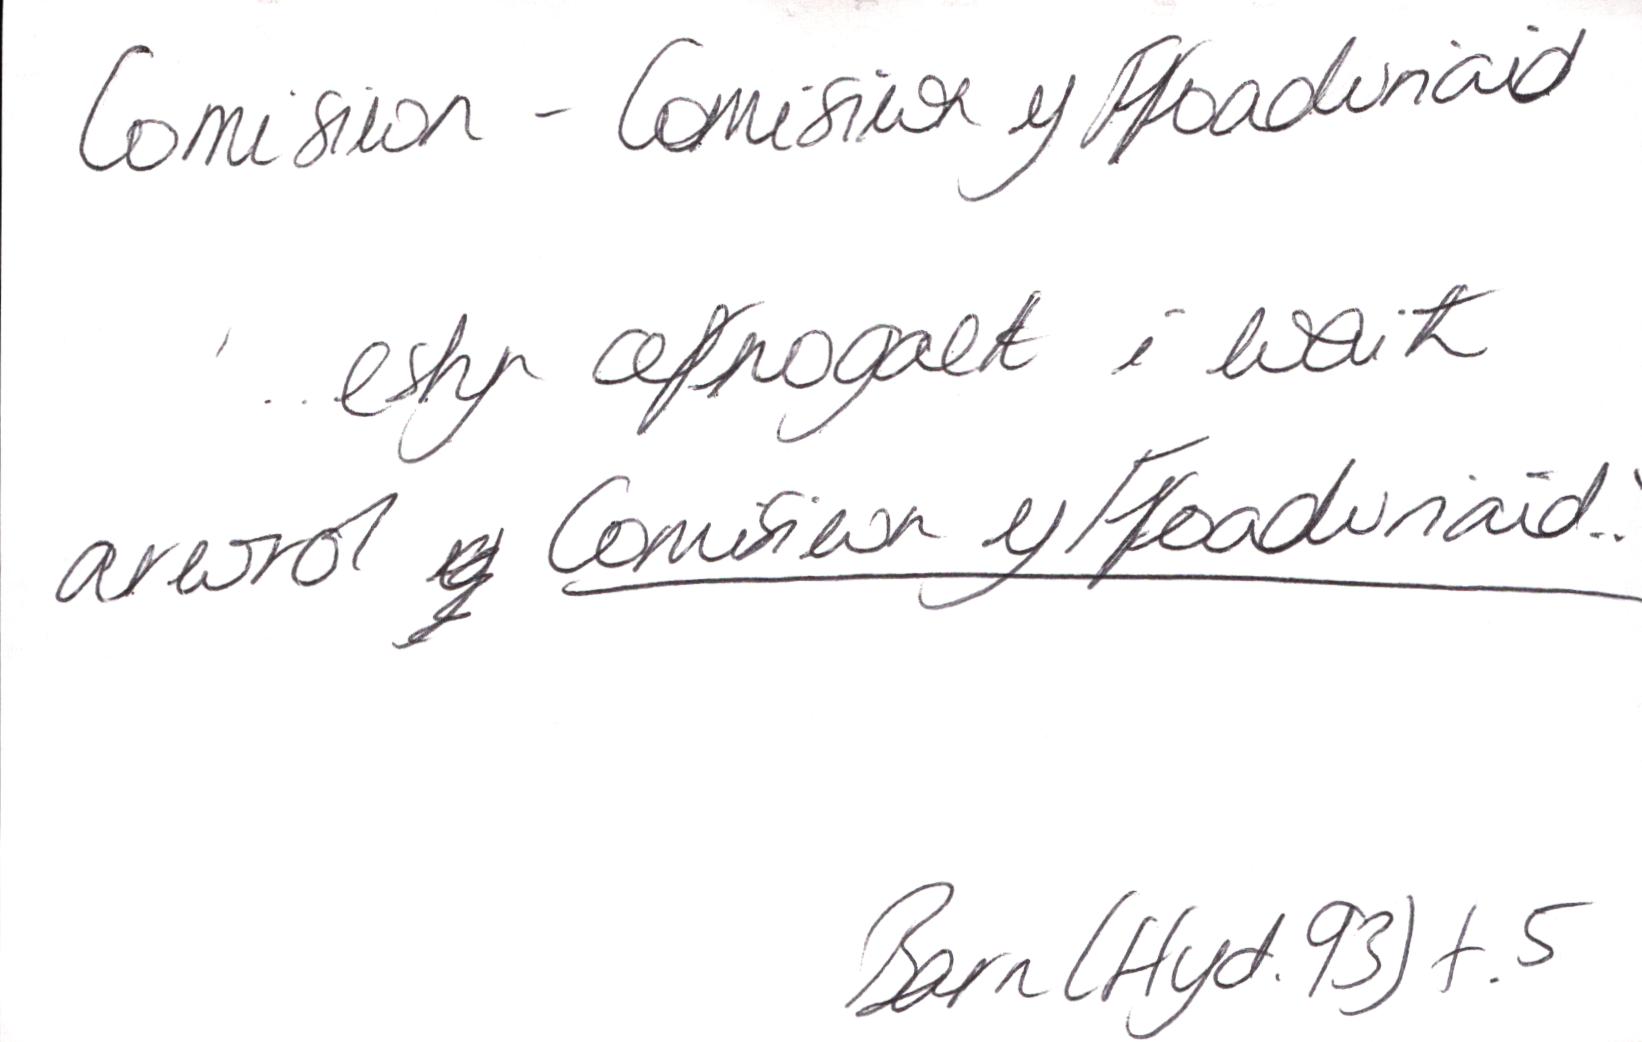 Comisiwn - Comisiwn y Ffoaduriaid
'...estyn cefnogaeth i waith
arwrol y Comisiwn y Ffoaduriaid..'
Barn (Hyd. 93) t. 5